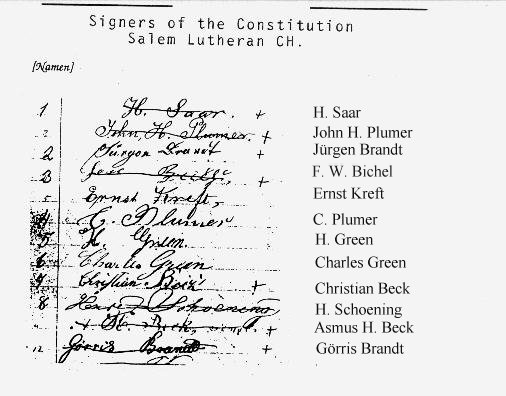 Signers of the Constitution
Salem Lutheran CH.
[Namen]
1 H. Saar. + H. Saar
2 John, H. Plumer. + John H. Plumer
2 Jürgen Brandt + Jürgen Brandt
3 + F. W. Bichel
5 Ernst Kreft, Ernst Kreft
4 C. Plumer C. Plumer
5 H. Green. H. Green
6 Charles Green Charles Green
Christian Beck + Christian Beck
8 Schoening H. Schoening
H. Beck, + Asmus H. Beck
12 Görris Brandt + Görris Brandt